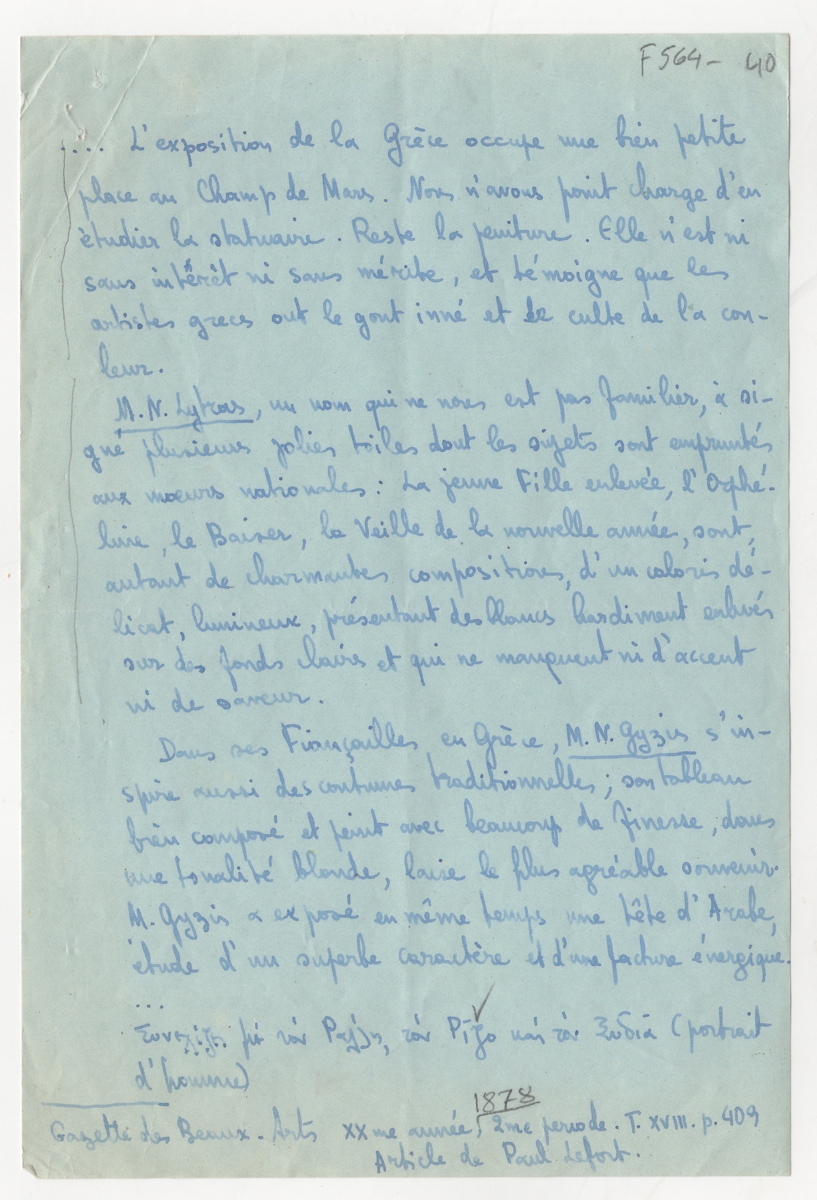 F564- 40
.... L'exposition de la Grèce occupe une bien petite
place au Champ de Mars. Nous n'avons point charge d'en
étudier la statuaire. Reste la peinture. Elle n'est ni
sans intérêt ni sans mérite, et témoigne que les
artistes grecs ont le gout inné et le culte de la cou-
leur.
M. N. Lytras, un nom qui ne nous est pas familier, à si-
gné plusieurs jolies toiles dont les sujets sont empruntés
aux mœurs nationales: La jeune Fille enlevée, l'Orphé-
line, le Baiser, la Veille de la nouvelle année, sont,
autant de charmantes compositions, d'un coloris dé-
licat, lumineux, présentant des blancs hardiment enlevés
sur des fonds clairs et qui ne manquent ni d'accent
ni de saveur.
Dans ses Fiançailles en Grèce, M. N. Gyzis s'in-
spire aussi des coutumes traditionnelles; son tableau
bien composé et peint avec beaucoup de finesse, dans
une tonalité blonde, laise le plus agréable souvenir.
M. Gyzis a exposé en même temps une tête d'Arabe,
étude d'un superbe caractère et d'une facture énergique.
...
Συνεχίζει μὲ τὸν Ράλλη, τὸν Ρίζο καὶ τὸν Ξυδιᾶ (portrait
d'homme)
1878
Gazette des Beaux-Arts XXme année, 2me periode. T. XVIII. p. 409
Article de Paul Lefort.